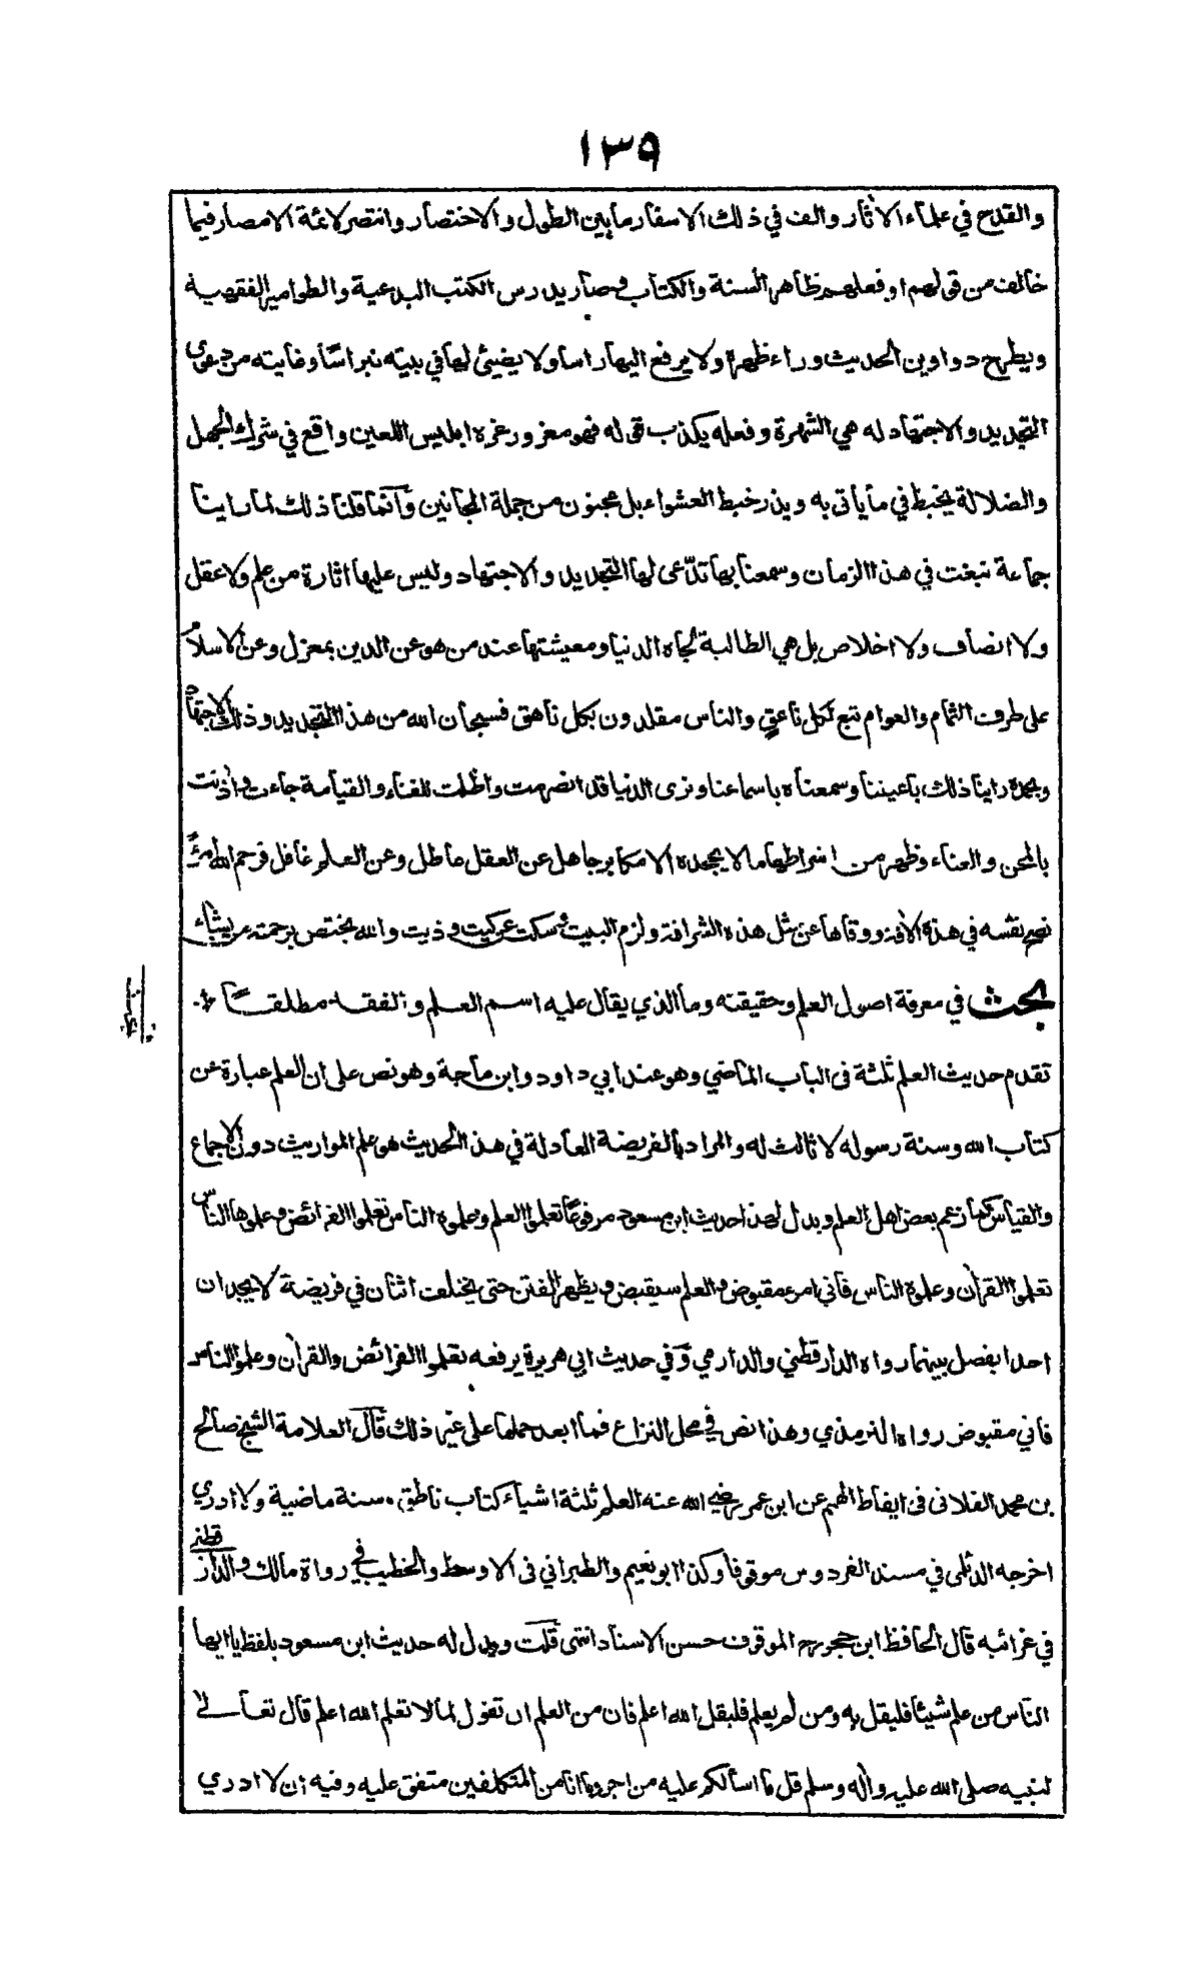 ١٣٩
والقدح في علماء الآثار والف في ذلك الاسفار ما بين الطول والاختصار وانتصر لائمة الامصار فيما
خالف من قولهم او فعلهم ظاهر السنة والكتاب وصار يدرس الكتب البدعية والطوامير الفقهية
ويطرح دواوين الحديث وراء ظهره ولا يرفع اليها راسا ولا يضيئ لها في بيته نبراسًا وغايته من دعوى
التجديد والاجتهاد له هي الشهرة وفعله يكذب قوله فهو مغرور غره ابليس اللعين واقع في شرك الجهل
والضلالة يخبط في ما يأتى به ويذر خبط العشواء بل مجنون من جملة المجانين وانما قلنا ذلك لما راينا
جماعة نبغت في هذا الزمان وسمعنا بها تدّعى لها التجديد والاجتهاد وليس عليها اثارة من علم ولا عقل
ولا انصاف ولا اخلاص بل هي الطالبة لجاه الدنيا ومعيشتها عند من هو عن الدين بمعزل وعن الاسلام
على طرف الثمام والعوام تبع لكل ناعق والناس مقلدون بكل ناهق فسبحان الله من هذا التجديد وذلك الاجتهاد
وبحمده راينا ذلك باعيننا وسمعناه باسماعنا ونرى الدنيا قد انصرمت واظلت للفناء والقيامة جاءت واذنت
بالمحن والعناء وظهر من اشراطها ما لا يجحده الا مكابر جاهل عن العقل عاطل وعن العلم غافل فرحم الله امرًأ
نصح نفسه في هذه الآفة ووقاها عن مثل هذه الشرافة ولزم البيت وسكت عن كيت وذيت والله يختص برحمته من يشاء
بحث في معرفة اصول العلم وحقيقته وما الذي يقال عليه اسم العلم والفقه مطلقًا
تقدم حديث العلم ثلثة فى الباب الماضي وهو عند ابي داود وابن ماجة وهو نص على ان العلم عبارة عن
كتاب الله وسنة رسوله لا ثالث له والمراد بالفريضة العادلة في هذا الحديث هو علم المواريث دون الاجماع
والقياس كما زعم بعض اهل العلم ويدل لهذا حديث ابن مسعود مرفوعًا تعلموا العلم وعلموه الناس تعلموا الفرائض وعلموها الناس
تعلموا القرآن وعلموه الناس فاني امرء مقبوض والعلم سيقبض ويظهر الفتن حتى يختلف اثنان في فريضة لا يجدان
احدا يفصل بينهما رواه الدارقطني والدارمي وفي حديث ابي هريرة يرفعه تعلموا الفرائض والقرآن وعلموا الناس
فاني مقبوض رواه الترمذي وهذا نص في محل النزاع فما ابعد حملها على غير ذلك قال العلامة الشيخ صالح
بن محمد الفلانى فى ايقاظ الهمم عن ابن عمر رضي الله عنه العلم ثلثة اشياء كتاب ناطق وسنة ماضية ولا ادري
اخرجه الديلمى في مسند الفردوس موقوفا وكذا ابو نعيم والطبراني فى الاوسط والخطيب في رواة مالك والدارقطني
في غرائبه قال الحافظ ابن حجر رح الموقوف حسن الاسناد انتهى قلت ويدل له حديث ابن مسعود بلفظ يا ايها
الناس من علم شيئا فليقل به ومن لم يعلم فليقل الله اعلم فان من العلم ان تقول لما لا تعلم الله اعلم قال تعالى
لنبيه صلى الله عليه وآله وسلم قل ما اسألكم عليه من اجر وما انا من المتكلفين متفق عليه وفيه ان لا ادري